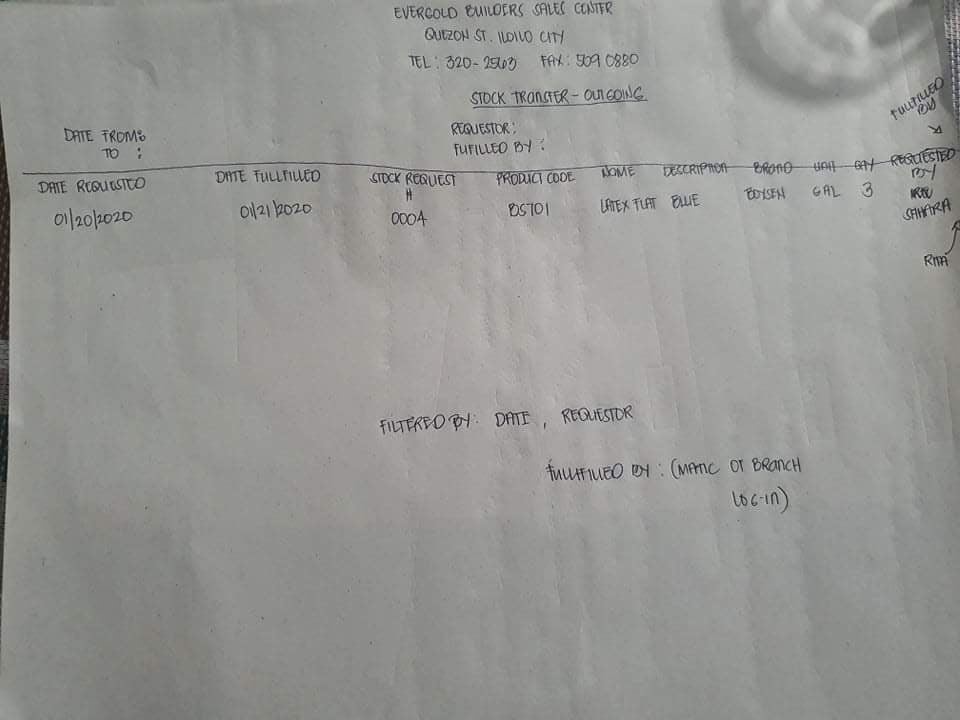 EVERGOLD BUILDERS SALES CENTER
QUEZON ST. ILOILO CITY
TEL : 320-2563 FAX : 509 0880
STOCK TRANSFER - OUTGOING
DATE FROM:
TO :
REQUESTOR :
FUFILLED BY :
FULLFILLED BY
DATE REQUESTED DATE FULLFILLED STOCK REQUEST # PRODUCT CODE NAME DESCRIPTION BRAND UNIT QTY REQUESTED BY
01/20/2020 01/21/2020 0004 BST01 LATEX FLAT BLUE BOYSEN GAL 3 SAHARA
RITA
FILTERED BY : DATE , REQUESTOR
FULLFILLED BY : (MATIC OT BRANCH
LOG-IN)